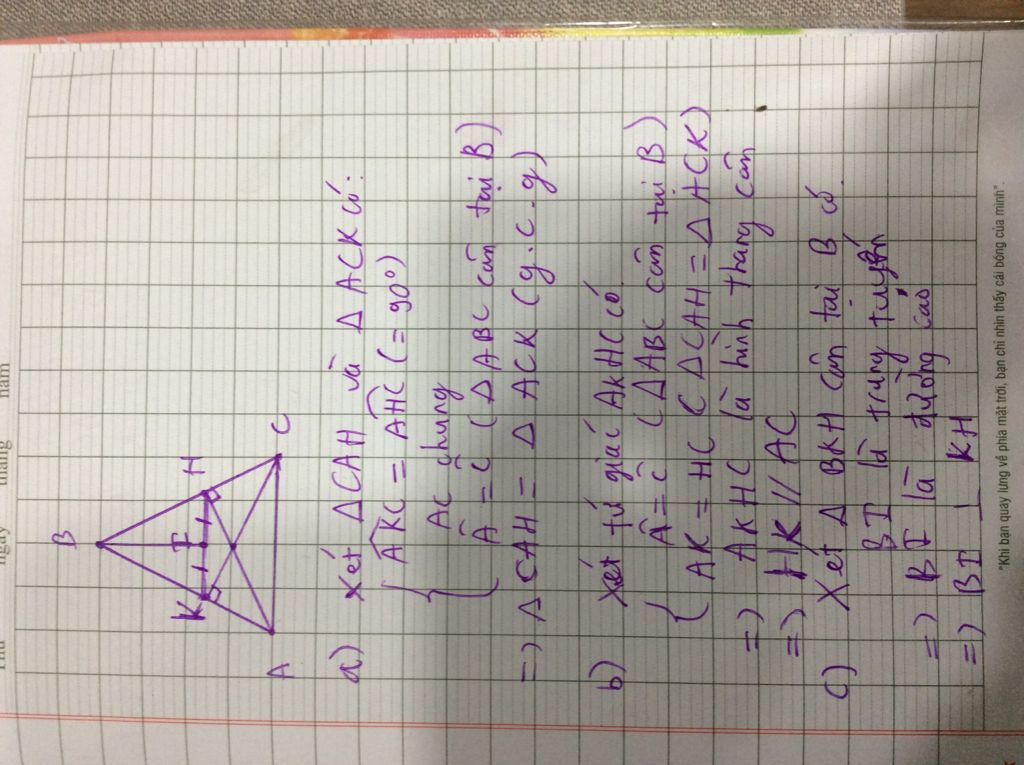 Thứ
ngày
tháng
năm
B
K
I
H
A
C
a) Xét ΔCAH và ΔACK có:
AKC = AHC (= 90°)
AC chung
Â = Ĉ (ΔABC cân tại B)
=> ΔCAH = ΔACK (g.c.g)
b) Xét tứ giác AKHC có
Â = Ĉ (ΔABC cân tại B)
AK = HC (ΔCAH = ΔACK)
=> AKHC là hình thang cân
=> HK // AC
c) Xét Δ BKH cân tại B có.
BI là trung tuyến
=> BI là đường cao
=> BI ⊥ KH
"Khi bạn quay lưng về phía mặt trời, bạn chỉ nhìn thấy cái bóng của mình".